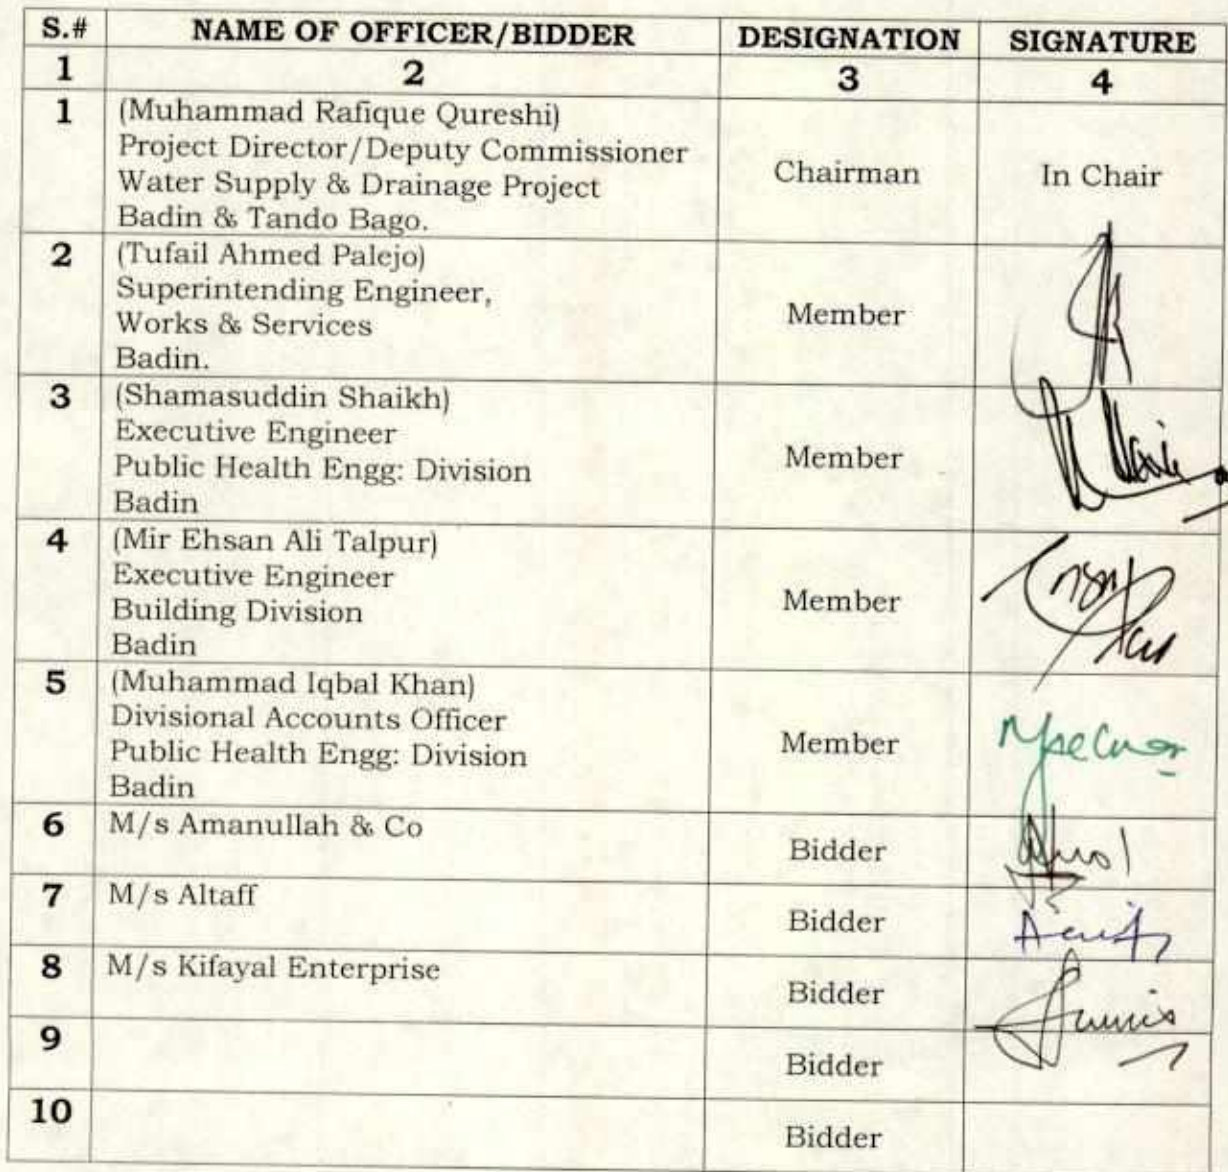 S.# NAME OF OFFICER/BIDDER DESIGNATION SIGNATURE
1 2 3 4
1 (Muhammad Rafique Qureshi)
Project Director/Deputy Commissioner
Water Supply & Drainage Project
Badin & Tando Bago.
Chairman In Chair
2 (Tufail Ahmed Palejo)
Superintending Engineer,
Works & Services
Badin.
Member
3 (Shamasuddin Shaikh)
Executive Engineer
Public Health Engg: Division
Badin
Member
4 (Mir Ehsan Ali Talpur)
Executive Engineer
Building Division
Badin
Member
5 (Muhammad Iqbal Khan)
Divisional Accounts Officer
Public Health Engg: Division
Badin
Member
6 M/s Amanullah & Co Bidder
7 M/s Altaff Bidder
8 M/s Kifayal Enterprise Bidder
9 Bidder
10 Bidder